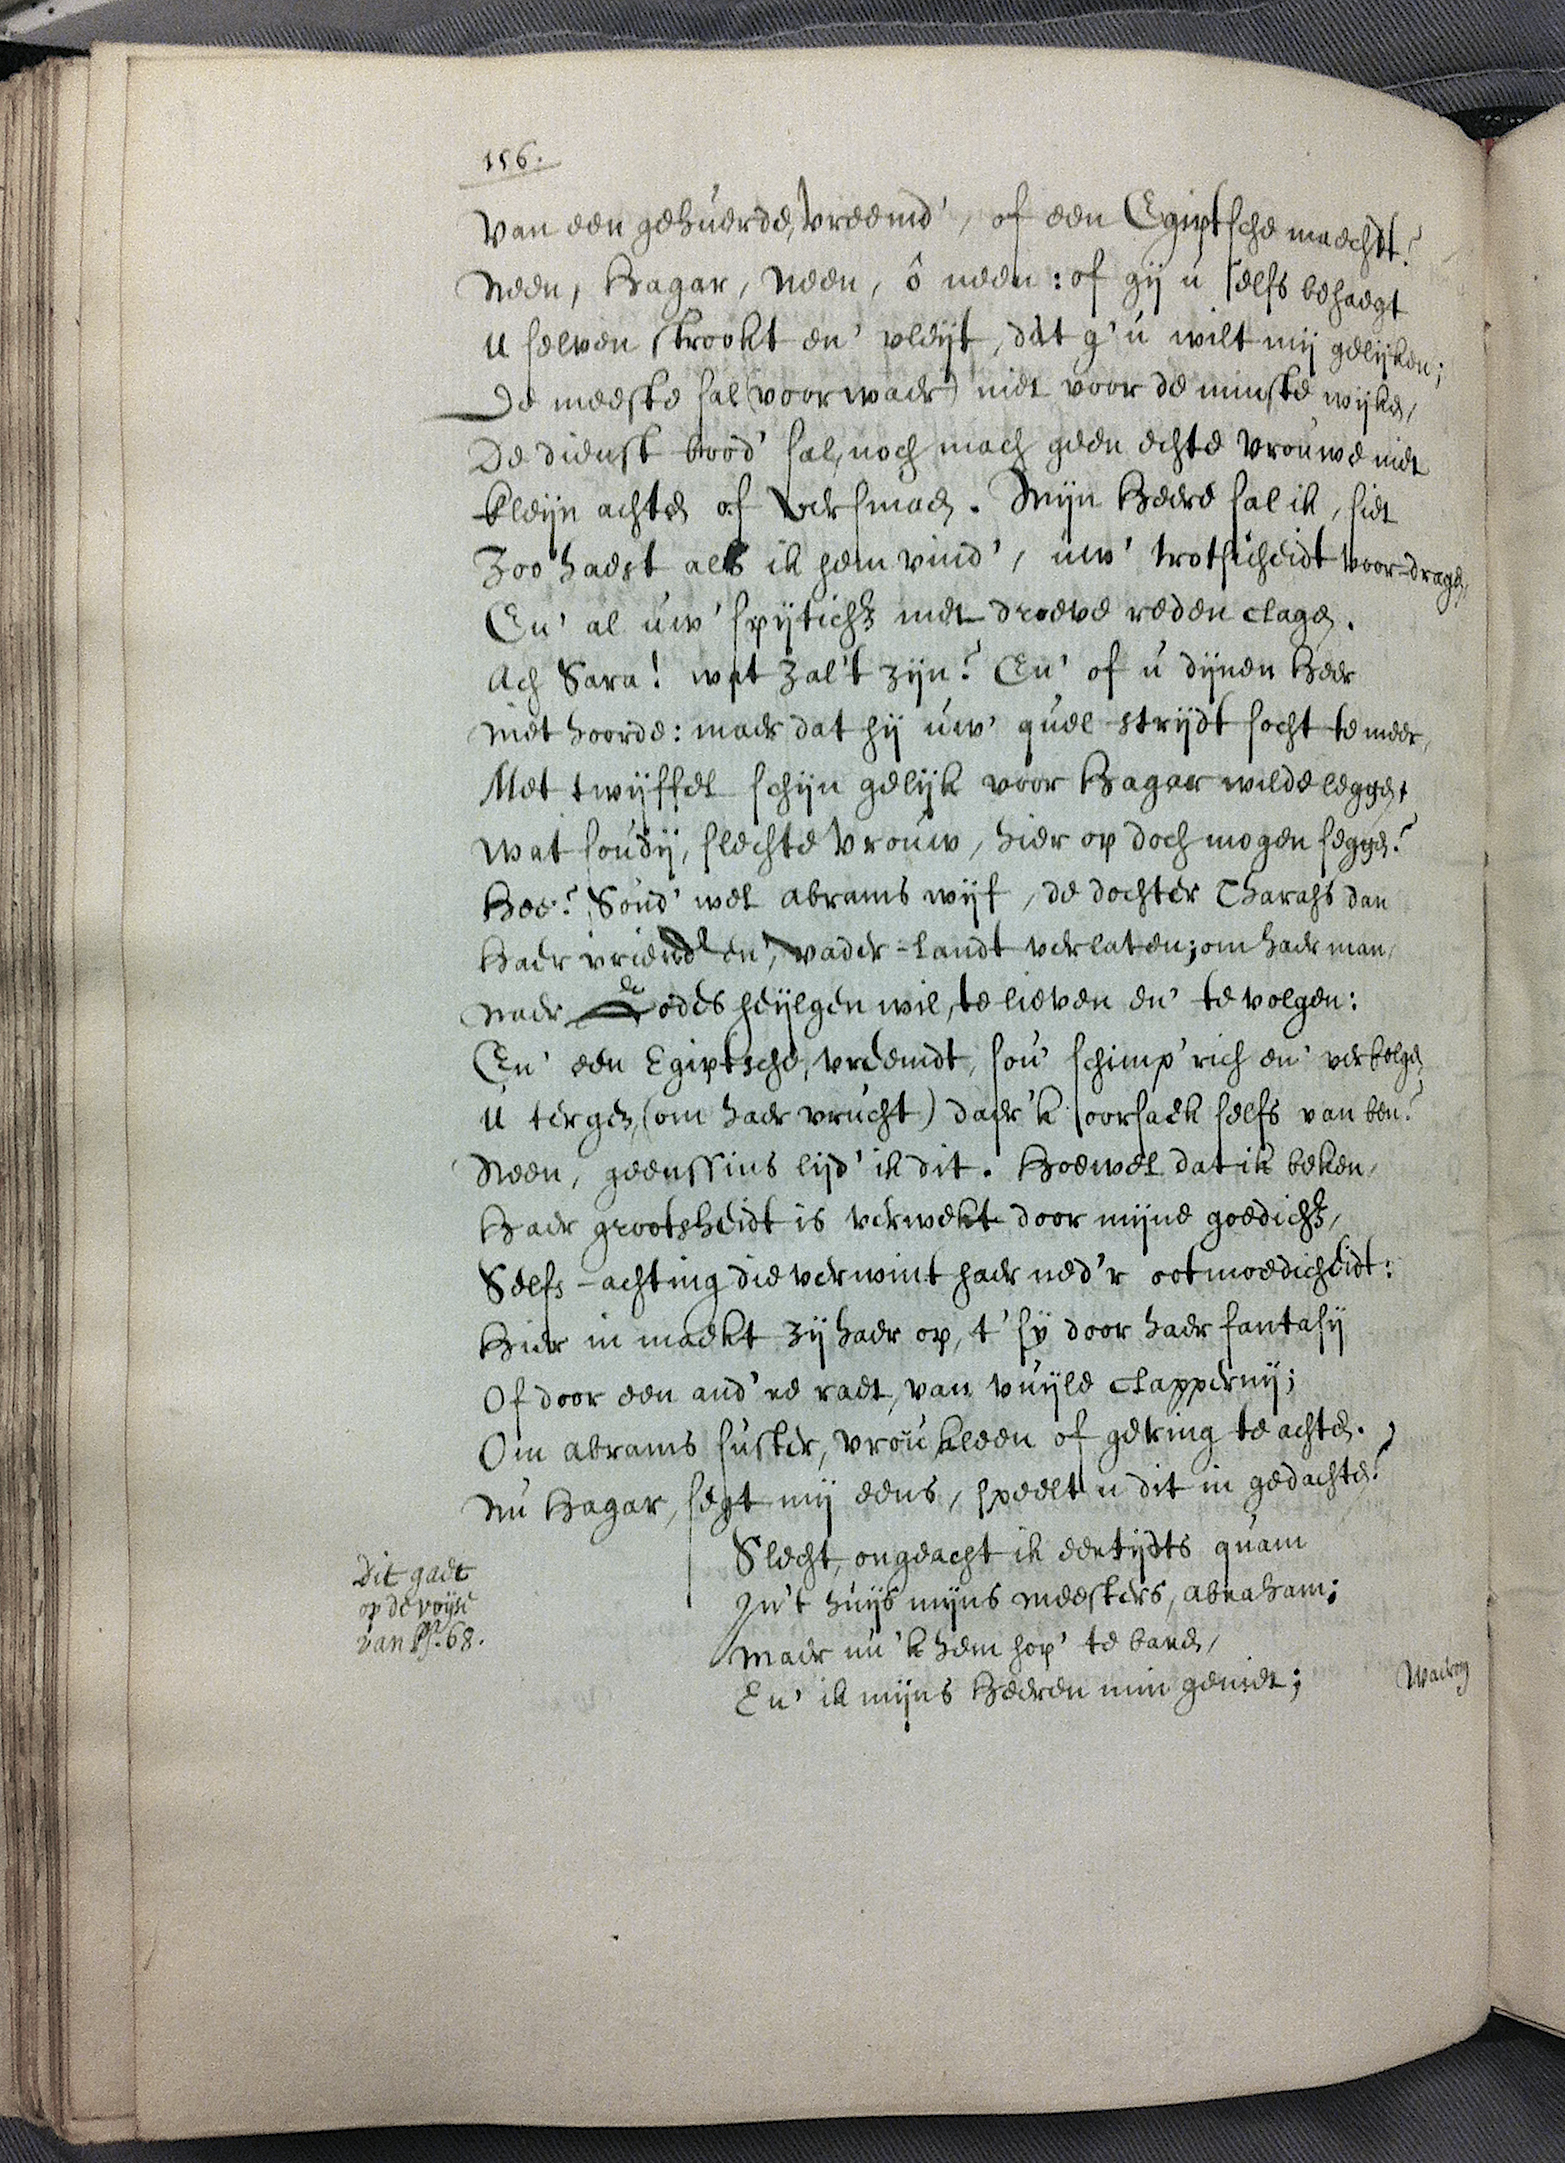 156.
Van een gehuerde, vreemd', of een Egiptsche maecht?
Neen, Hagar, Neen, ô neen: of gij u selfs behaegt
U selven strookt en' vleijt, dat g'u wilt mij gelijken;
De meeste sal (voorwaer) niet voor de minste wijken,
De dienst-bood' sal, noch mach geen echte vrouwe niet
kleijn achten of versmaen. Mijn Heere sal ik, siet
Zoo haest als ik hem vind', uw' trotsicheidt voor-dragen,
En' al uw' spijticht met droeve reden clagen.
Ach Sara! wat zal't zijn? En' of u dijnen Heer
niet hoorde: maer dat hij uw' quel-strijdt socht te meer,
Met twijffel schijn gelijk voor Hagar wilde leggen,
wat soudij, slechte vrouw, hier op doch mogen seggen?
Hoe? Soud' wel Abrams wijf, de dochter Tharahs dan
Haer vriend' en' vader-landt verlaten; om haer man,
naer Godes heijlgen wil, te lieven en' te volgen:
En' een Egiptsche, vreemdt, sou' schimp'rich en' verbolgen
U tergen, (om haer vrucht) daer'k oorsaek selfs van ben?
Neen, geenssins lijd' ik dit. Hoewel dat ik beken,
Haer grootsheidt is verwekt door mijne goedicht,
Selfs-achting die verwint haer ned'r ootmoedicheidt:
Hier in maekt zij haer op, t'sij door haer fantasij
Of door een and're raet, van vuijle clappernij;
Om Abrams suster, vrou kleen of gering te achten.
Nu Hagar, segt mij eens, speelt u dit in gedachten?
Slecht, ongeacht ik eertijdts quam
In't huijs mijns meesters, Abraham;
Maer nu 'k hem hop' te baren,
En' ik mijns Heeren min geniet;
Dit gaet
op de voijse
van Ps. 68.
Waerom